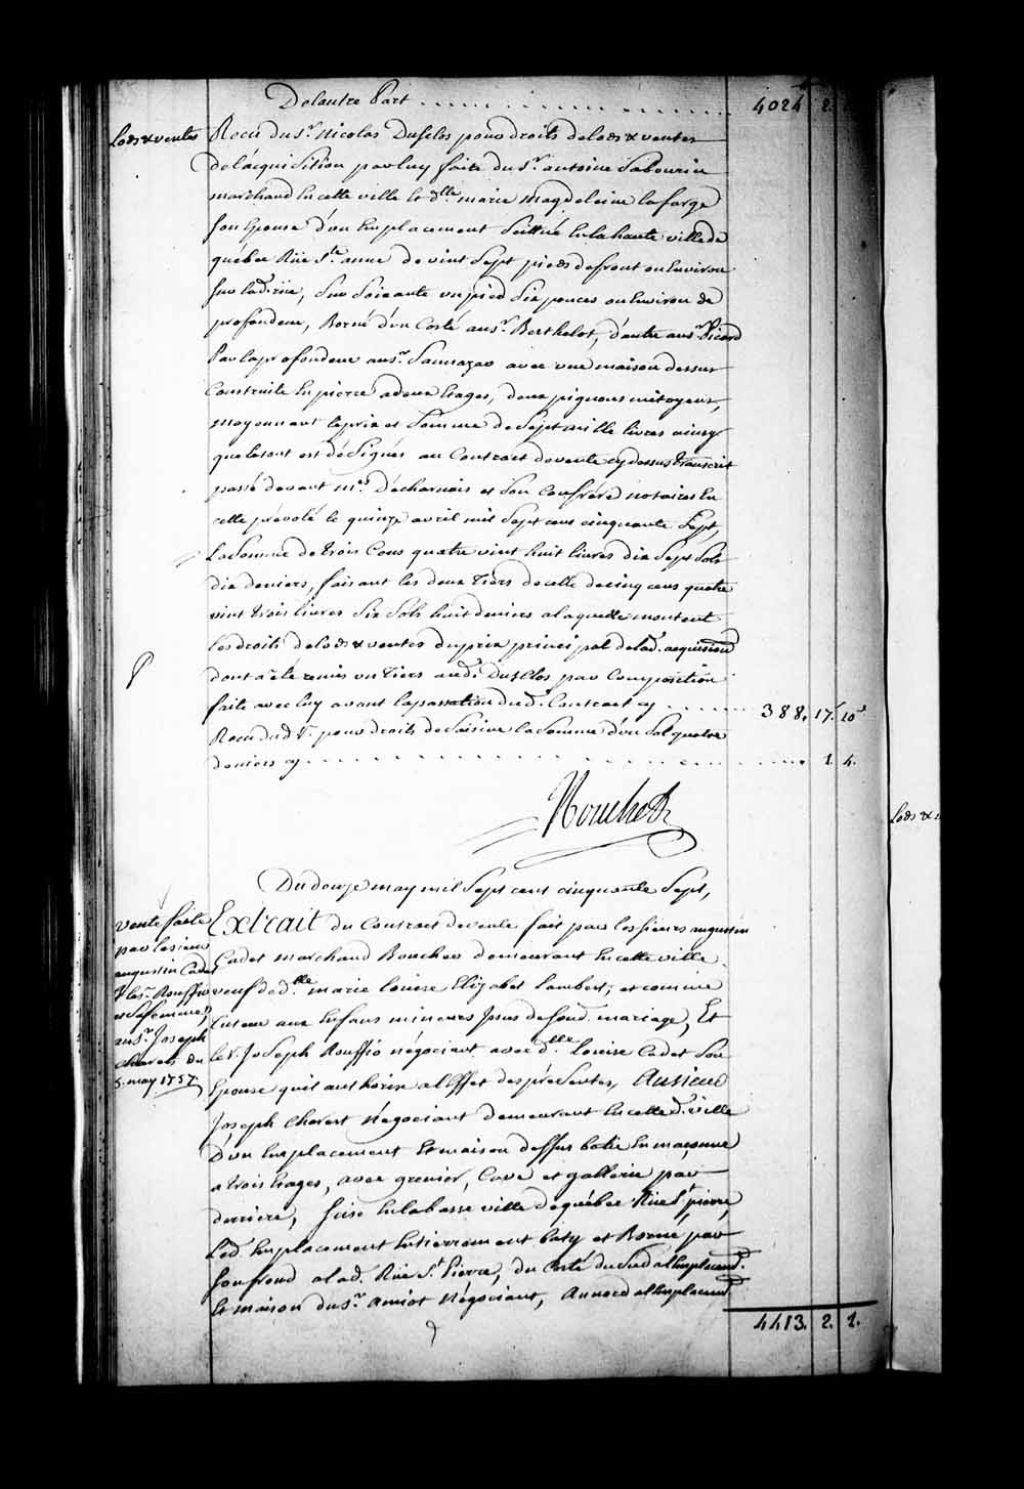 De lautre Part . . . . . . . . . . . . . . 4024 2.
Lods & ventes
Recu du Sr. Nicolas Dufclos pour droits de lods & ventes
de lacquisition par luy faite du Sr. antoine Sabourin
marchand En cette ville Et dlle marie Magdeleine laforge
Son Epouse d'un Emplacement Scittué En la haute ville de
quebec Rüe Ste. anne de vint Sept pieds de front ou Environ
Sur lad. rüe, Sur Soixante un pied Six pouces ou Environ de
profondeur, Borné d'un Costé au Sr. Berthelot, d'autre au Sr. Picard
Par la profondeur au Sr. avec une maison dessus
Construite En pierre a deux Etages, deux pignons mitoyens,
moyennant le prix et Somme de Sept mille livres ainsy
que le tout est désigné au Contract de vente cy dessus transcrit
passé devant Mes. Décharnais et Son Confrère notaires En
cette prévoté le quinze avril mil Sept cens cinquante Sept,
La Somme de trois Cens quatre vint huit livres dix Sept Sols
dix deniers, faisant les deux Tiers de celle de cinq cens quatre
vint trois livres Six Sols huit deniers a laquelle montent
les droits de lods & ventes du prix principal de lad. acquisition
dont a été remis un Tiers aud. Duffclos par Composition
faite avec luy avant la passation dud. Contract cy . . . . . 388. 17. 10d
Recu dud. Sr. pour droits de Saisine la Somme d'un Sol quatre
deniers cy . . . . . . . . . . . . . . . . . . 1. 4.
Du douze may mil Sept cent cinquante Sept,
vente faite
par le sieur
augustin Cadet
& le Sr. Rouffio
et Sa femme,
au Sr. Joseph
Charest du
5. may 1757
Extrait du Contract de vente fait par les Sieurs augustin
Cadet Marchand Boucher demeurant En cette ville
veuf de dlle. marie louise Elizabet Lambert, et comme
Tuteur aux Enfans mineurs Issus de Sond. mariage, Et
le Sr. Joseph Rouffio négociant avec dlle. Louise Cadet Son
Epouse qu'il authorise a l'Effet des présentes, Au Sieur
Joseph Charest Négociant demeurant En cette d. ville
D'un Emplacement Et maison dessus batie En maçonne
a trois Etages, avec grenier, Cave et gallerie par
derriere, Sise En la basse ville de québec Rüe St. pierre,
Led. Emplacement Entierement baty et Borné par
Son frond a lad. Rüe St. Pierre, du Costé du Sud a l'Emplacemt.
Et maison du Sr. Amiot Négociant, Au nord a l'Emplacemt.
4413. 2. 1.
Lods &